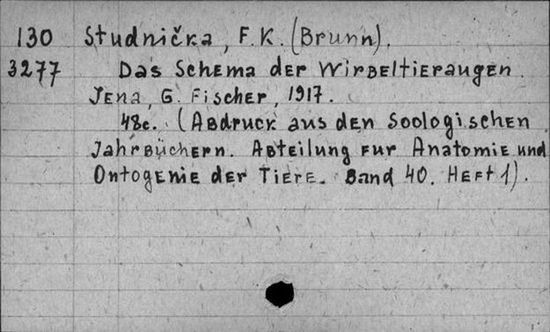 130 Studnička, F. K. (Brunn).
3277 Das Schema der Wirbeltieraugen.
Jena, G. Fischer, 1917.
48c. (Abdruck aus den Soologischen
Jahrbüchern. Abteilung fur Anatomie und
Ontogenie der Tiere. Band 40. Heft 1).